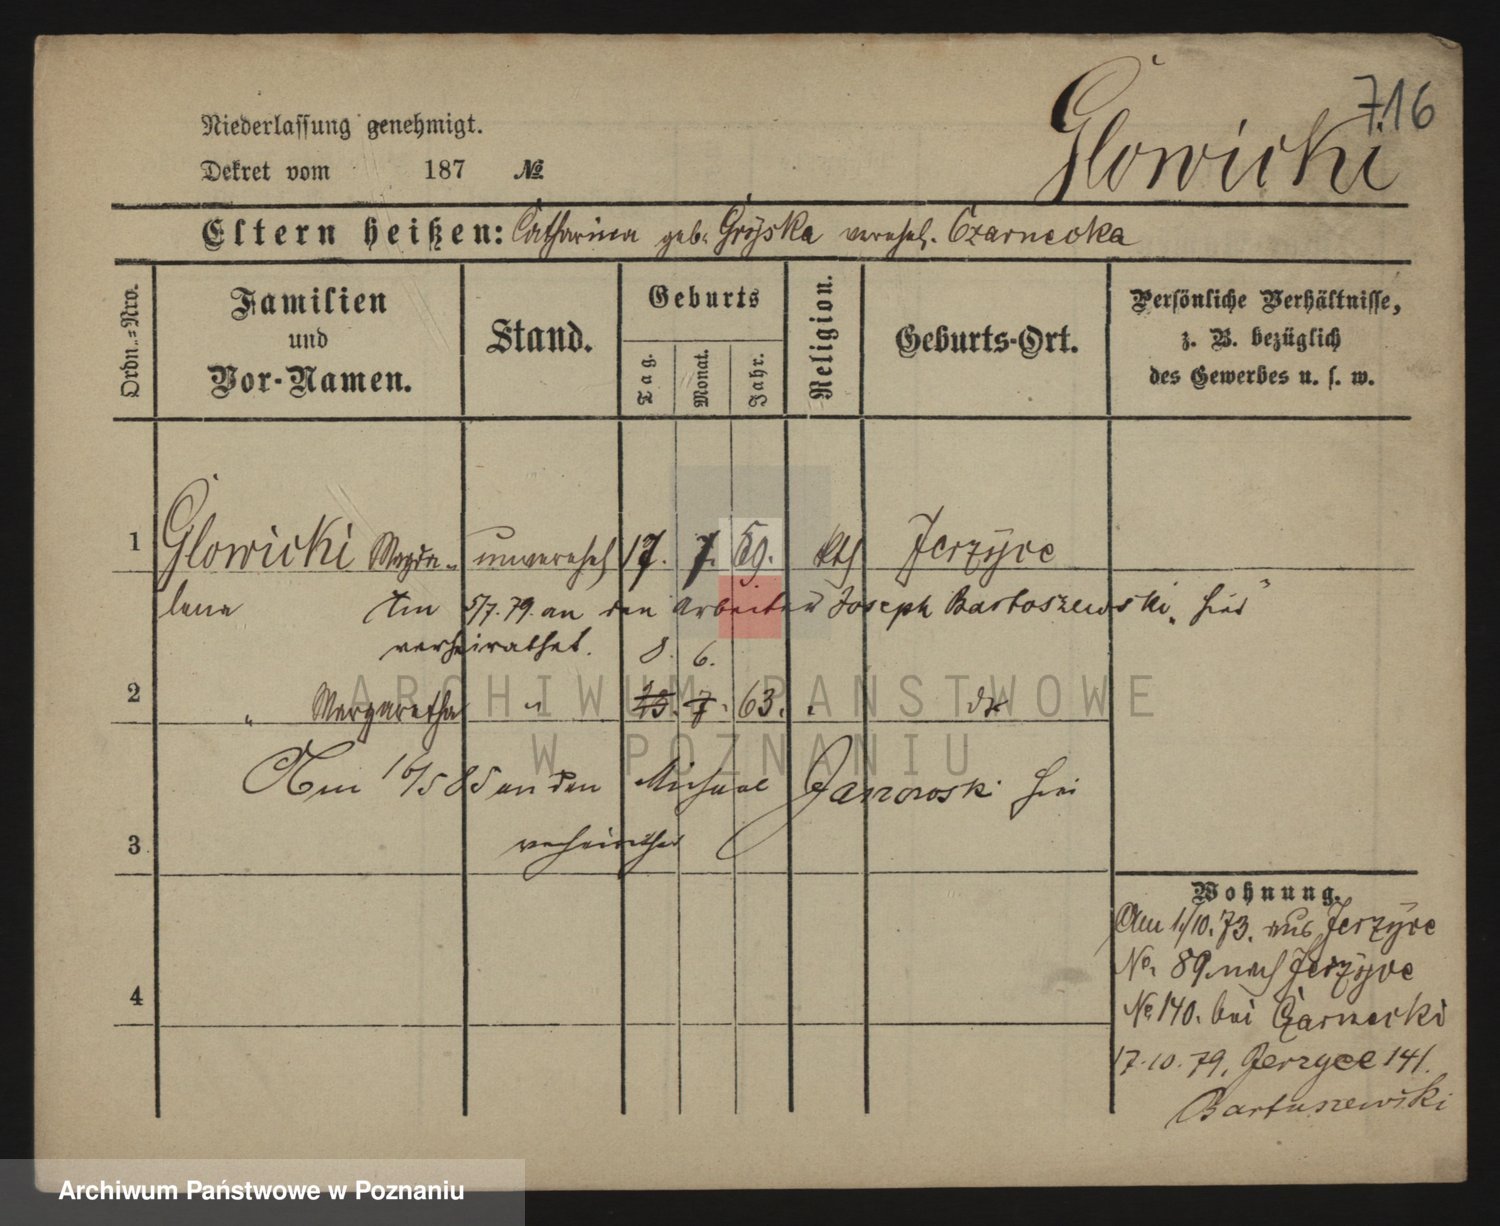 716
Glowicki
Niederlassung genehmigt.
Dekret vom 187 №
Eltern heißen: Catharina geb. Gröjska verehel. Czarnecka
Ordn.-Nro.
Familien
und
Vor-Namen.
Stand.
Geburts
Tag.
Monat.
Jahr.
Religion.
Geburts-Ort.
Persönliche Verhältnisse,
z. B. bezüglich
des Gewerbes u. s. w.
1 Glowicki Magda- unverehel 17. 7. 59. kth Jerzyce
lena Am 5/7. 79. an den Arbeiter Joseph Bartoszewski, hier
verheirathet. 8. 6.
2 " Margaretha " 25. 7. 63. " do
Am 16/5 85 an den Michael Janowski hier
3 verheirathet
Wohnung.
Am 1./10. 73. aus Jerzyce
No. 89. nach Jerzyce
4 No. 140. bei Czarnecki
17.10.79. Jerzyce 141.
Bartuszewski
ARCHIWUM PAŃSTWOWE
W POZNANIU
Archiwum Państwowe w Poznaniu